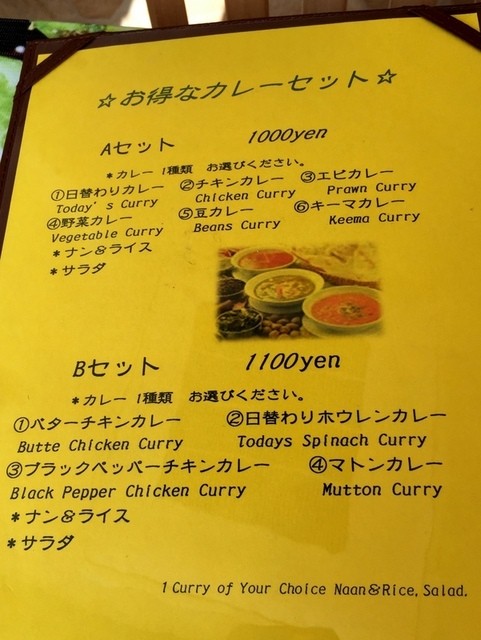 ☆お得なカレーセット☆
Aセット 1000yen
*カレー 1種類 お選びください。
①日替わりカレー ②チキンカレー ③エビカレー
Today's Curry Chicken Curry Prawn Curry
④野菜カレー ⑤豆カレー ⑥キーマカレー
Vegetable Curry Beans Curry Keema Curry
*ナン&ライス
*サラダ
Bセット 1100yen
*カレー 1種類 お選びください。
①バターチキンカレー ②日替わりホウレンカレー
Butte Chicken Curry Todays Spinach Curry
③ブラックペッパーチキンカレー ④マトンカレー
Black Pepper Chicken Curry Mutton Curry
*ナン&ライス
*サラダ
1 Curry of Your Choice Naan&Rice, Salad.